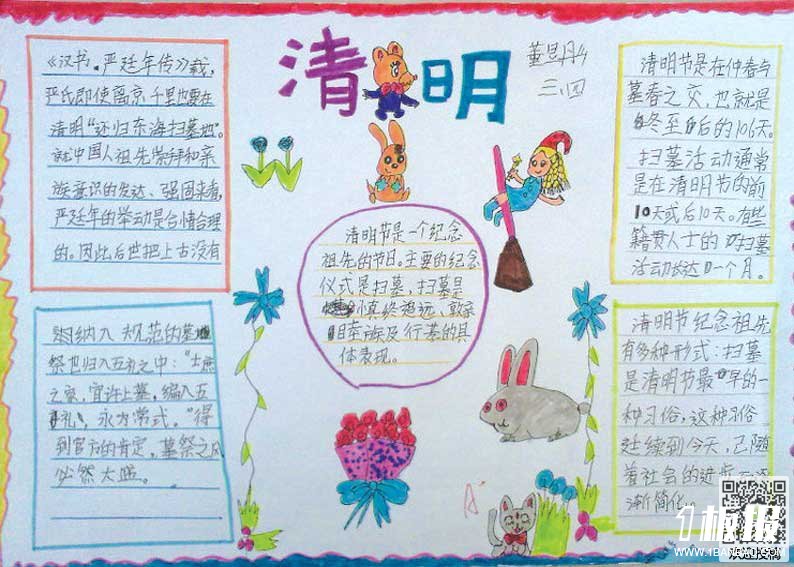 清明
三.四
《汉书.严延年传》载,
严氏即使离京千里也要在
清明“还归东海扫墓地”。
就中国人祖先崇拜和亲
族意识的发达、强固来看,
严廷年的举动是合情合理
的。因此后世把上古没有
纳入 规范的墓
祭也归入五礼之中:“士庶
之家,宜许上墓,编入五
礼,永为常式。”得
到官方的肯定,墓祭之风
必然大盛。
清明节是一个纪念
祖先的节日。主要的纪念
仪式是扫墓,扫墓是
慎终追远、敦亲
目圭族及行基的具
体表现。
清明节是在仲春与
墓春之交,也就是
冬至后的106天。
扫墓活动通常
是在清明节的前
10天或后10天。有些
籍贯人士的扫墓
活动长达一个月。
清明节纪念祖先
有多种形式:扫墓
是清明节最早的一
种习俗,这种习俗
延续到今天,已随
着社会的进步
渐简化。
A
1板报
WWW.1BANBAO.COM